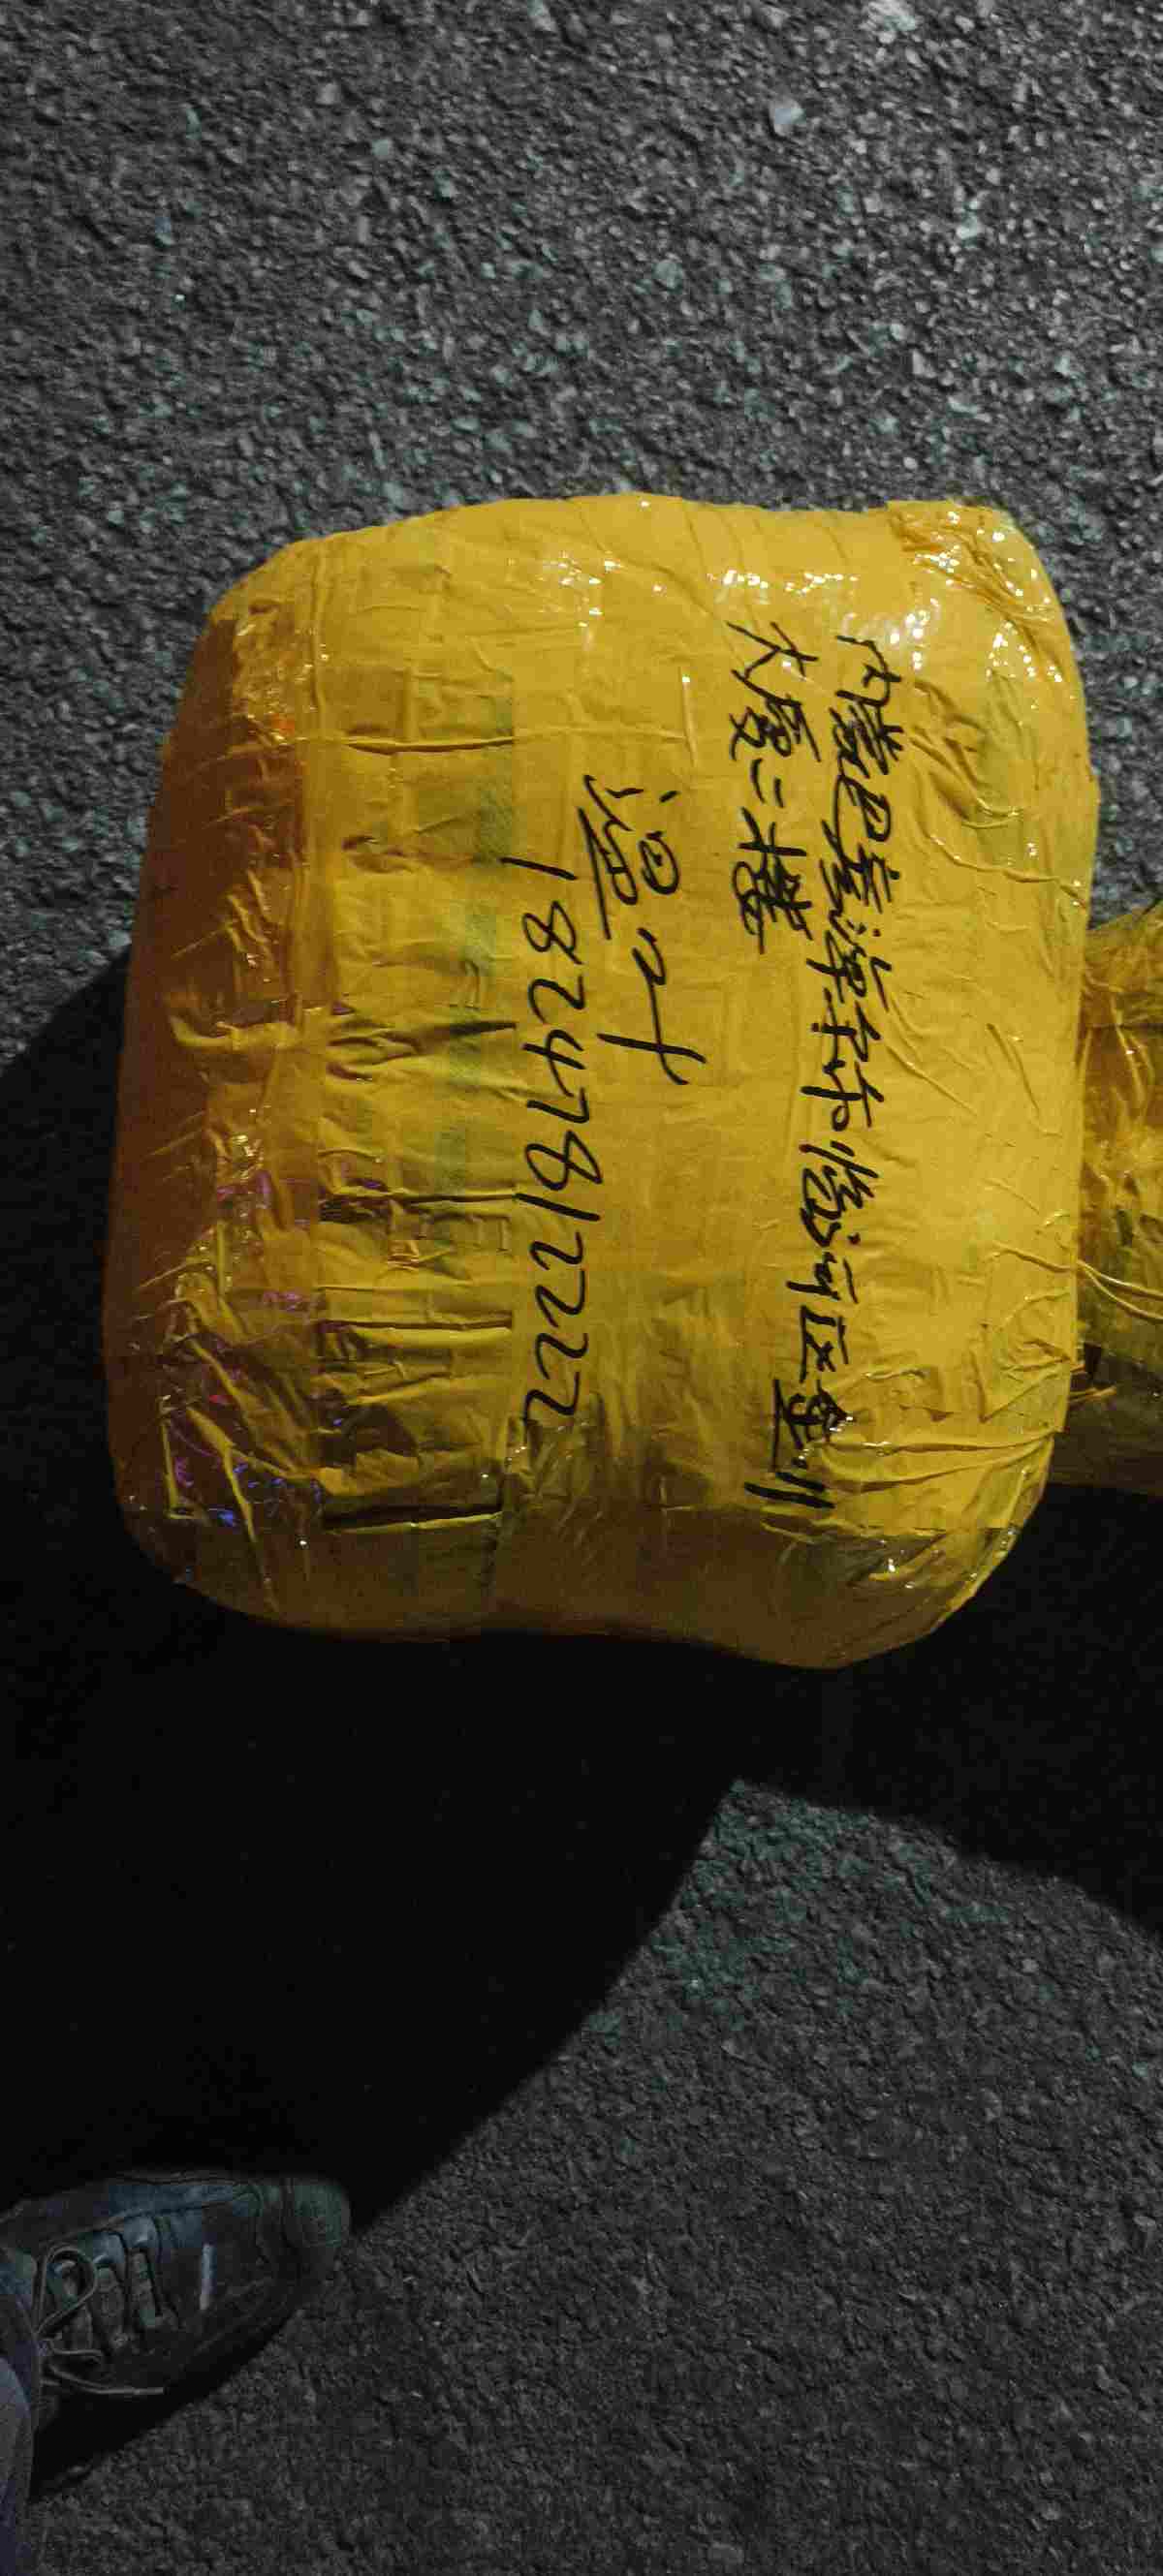 内蒙巴彦淖尔市临河区金川
大厦二楼
18247812222